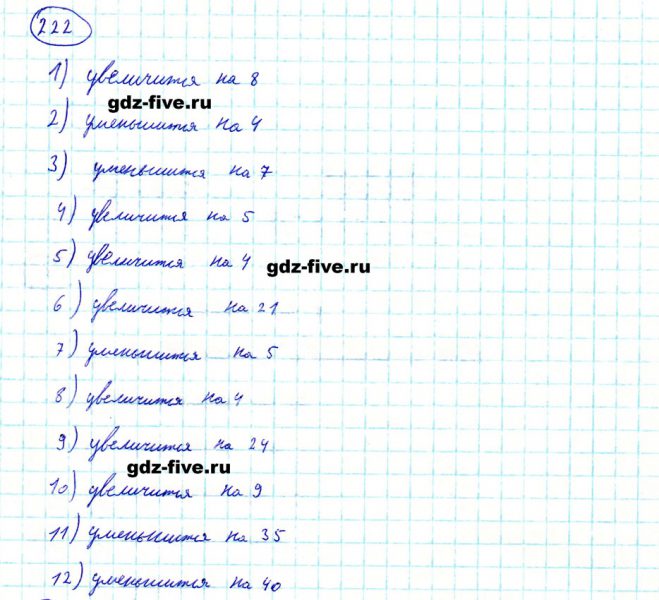 222
1) увеличится на 8
gdz-five.ru
2) уменьшится на 4
3) уменьшится на 7
4) увеличится на 5
5) увеличится на 4
gdz-five.ru
6) увеличится на 21
7) уменьшится на 5
8) увеличится на 4
9) увеличится на 24
gdz-five.ru
10) увеличится на 9
11) уменьшится на 35
12) уменьшится на 40